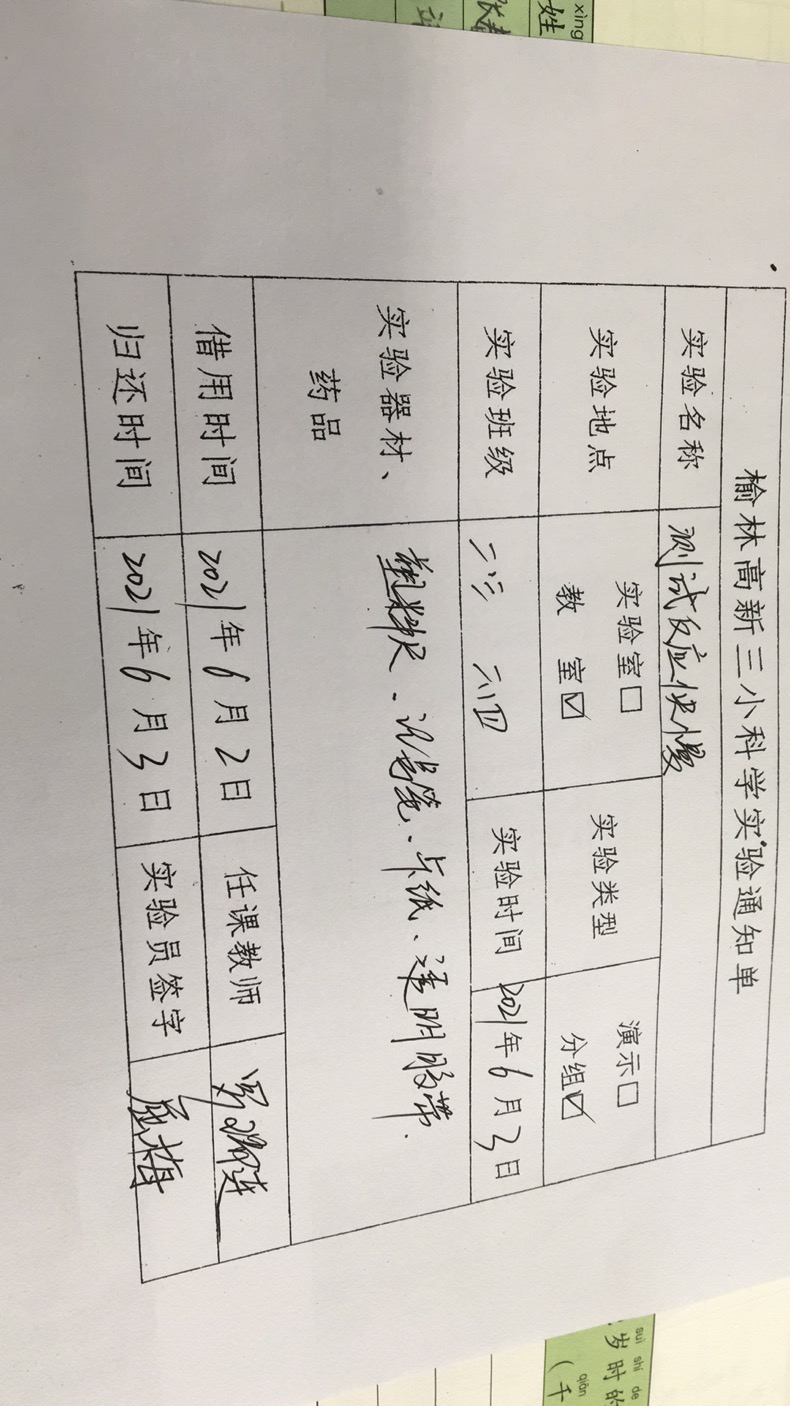 榆林高新三小科学实验通知单
实验名称 测试反应快慢
实验地点 实验室□ 教 室☑ 实验类型 演示□ 分组☑
实验班级 二三 二四 实验时间 2021年6月3日
实验器材、药品 塑料尺、记录笔、卡纸、透明胶带.
借用时间 2021年6月2日 任课教师
归还时间 2021年6月3日 实验员签字 屈梅
xìng
姓
suì shí de
岁时的
qiān
(千